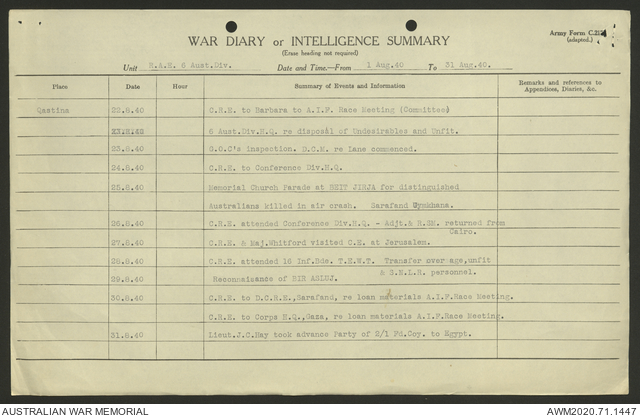 WAR DIARY or INTELLIGENCE SUMMARY
(Erase heading not required)
Army Form C.
(adapted.)
Unit R.A.E. 6 Aust.Div. Date and Time.—From 1 Aug.40 To 31 Aug.40.
Place Date Hour Summary of Events and Information Remarks and references to Appendices, Diaries, &c.
Qastina 22.8.40 C.R.E. to Barbara to A.I.F. Race Meeting (Committee)
6 Aust.Div.H.Q. re disposal of Undesirables and Unfit.
23.8.40 G.O.C's inspection. D.C.M. re Lane commenced.
24.8.40 C.R.E. to Conference Div.H.Q.
25.8.40 Memorial Church Parade at BEIT JIRJA for distinguished
Australians killed in air crash. Sarafand Gymkhana.
26.8.40 C.R.E. attended Conference Div.H.Q. - Adjt.& R.EM. returned from
Cairo.
27.8.40 C.R.E. & Maj.Whitford visited C.E. at Jerusalem.
28.8.40 C.R.E. attended 16 Inf.Bde. T.E.W.T. Transfer over age,unfit
& S.N.L.R. personnel.
29.8.40 Reconnaisance of BIR ASLUJ.
30.8.40 C.R.E. to D.C.R.E.,Sarafand, re loan materials A.I.F.Race Meeting.
C.R.E. to Corps H.Q.,Gaza, re loan materials A.I.F.Race Meeting.
31.8.40 Lieut.J.C.May took advance Party of 2/1 Fd.Coy. to Egypt.
AUSTRALIAN WAR MEMORIAL
AWM2020.71.1447